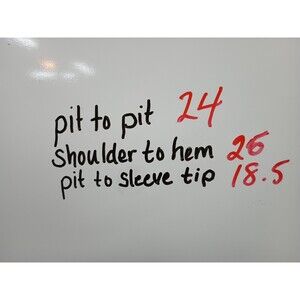 pit to pit 24
Shoulder to hem 26
pit to sleeve tip 18.5